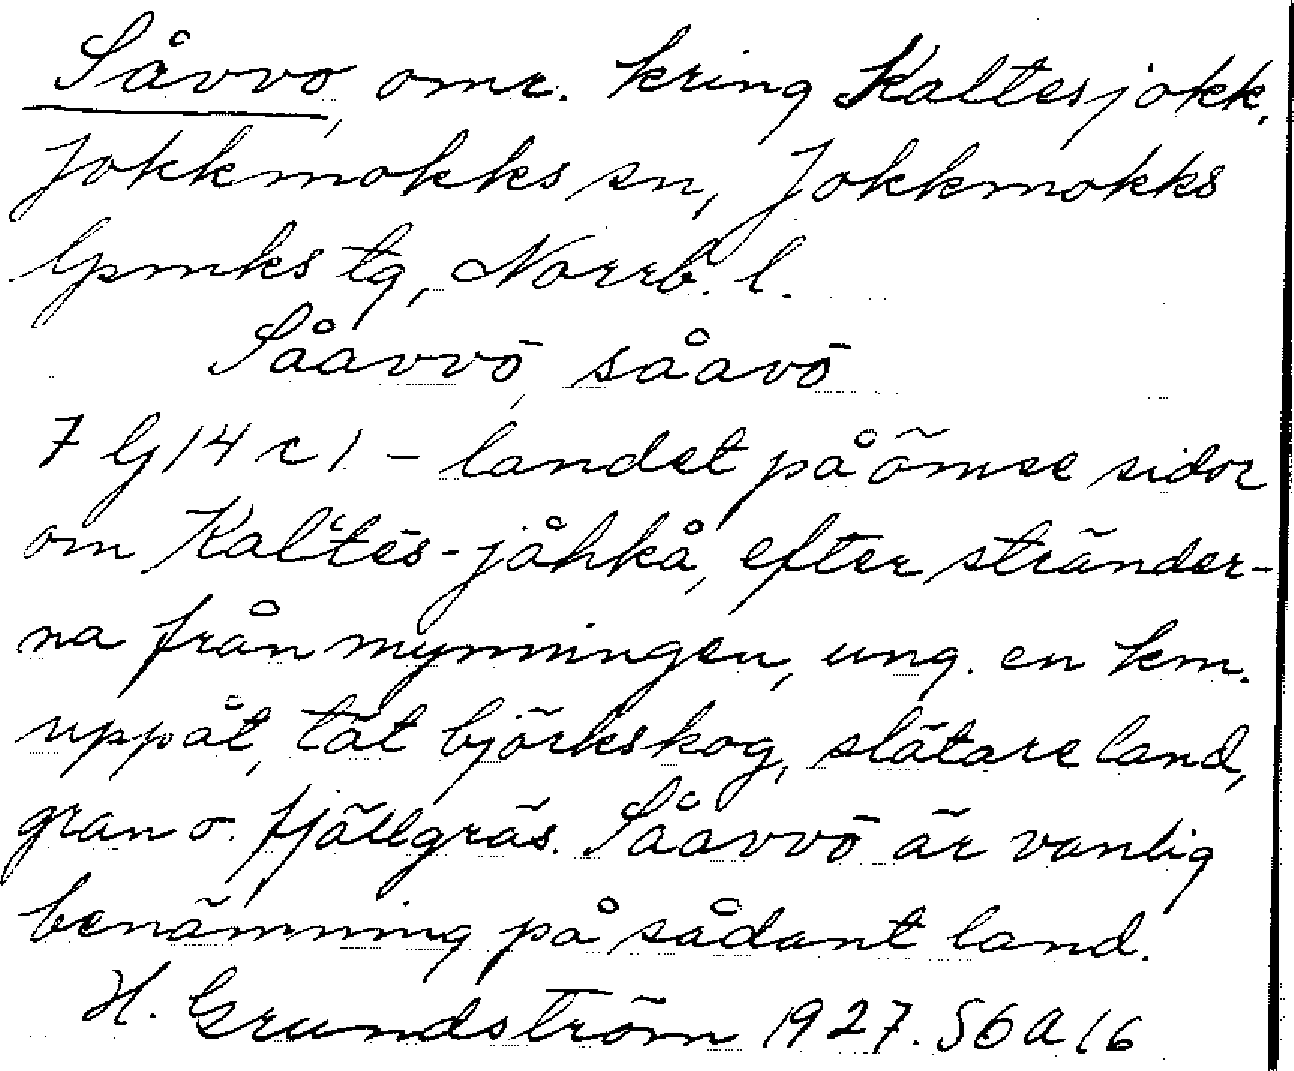 Såvvo, omr. kring Kaltesjokk,
Jokkmokks sn, Jokkmokks
lpmks tg, Norrb. l.
Såavvō, såavō
7 lj 14 c 1 – landet på ömse sidor
om Kalˈtēs-jåhkå, efter stränder-
na från mynningen, ung. en km.
uppåt, tät björkskog, slätare land,
gran o. fjällgräs. Såavvō är vanlig
benämning på sådant land.
H. Grundström 1927. S6a16